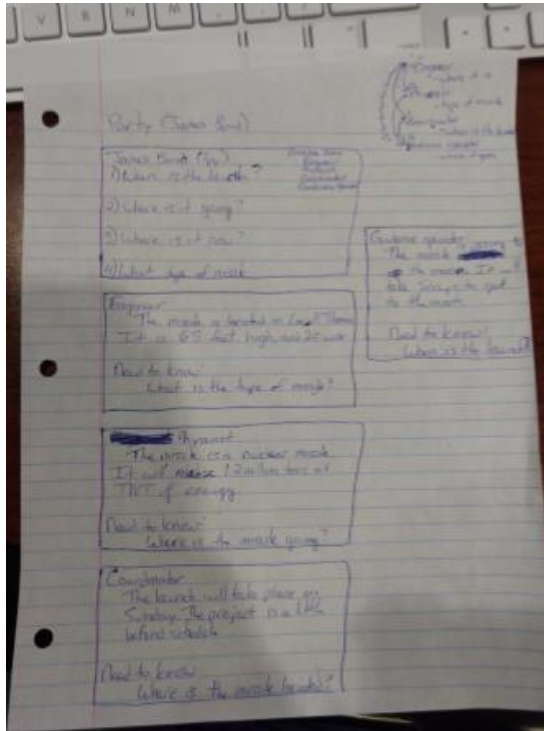 Party (James Bond)
James Bond
1) When is the launch?
2) Where is it going?
3) Where is it now?
4) What type of missile
Engineer
The missile is located in
It is 65 feet high, and 20 wide
Need to know:
What is the type of missile?
Physicist
The missile is a nuclear missile
It will release 1.2 million tons of
TNT of energy
Need to know:
Where is the missile going?
Coordinator
The launch will take place on
Sunday. The project is a little
behind schedule
Need to know
Where is the missile located?
Guidance operator
The missile is going to
the moon. It will
take 5 days to get
to the moon
Need to know:
When is the launch?
Engineer
where it is
type of missile
Coordinator